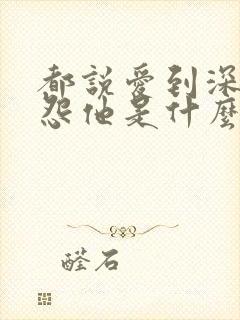 都說愛到深
怨他是什麼
醛石